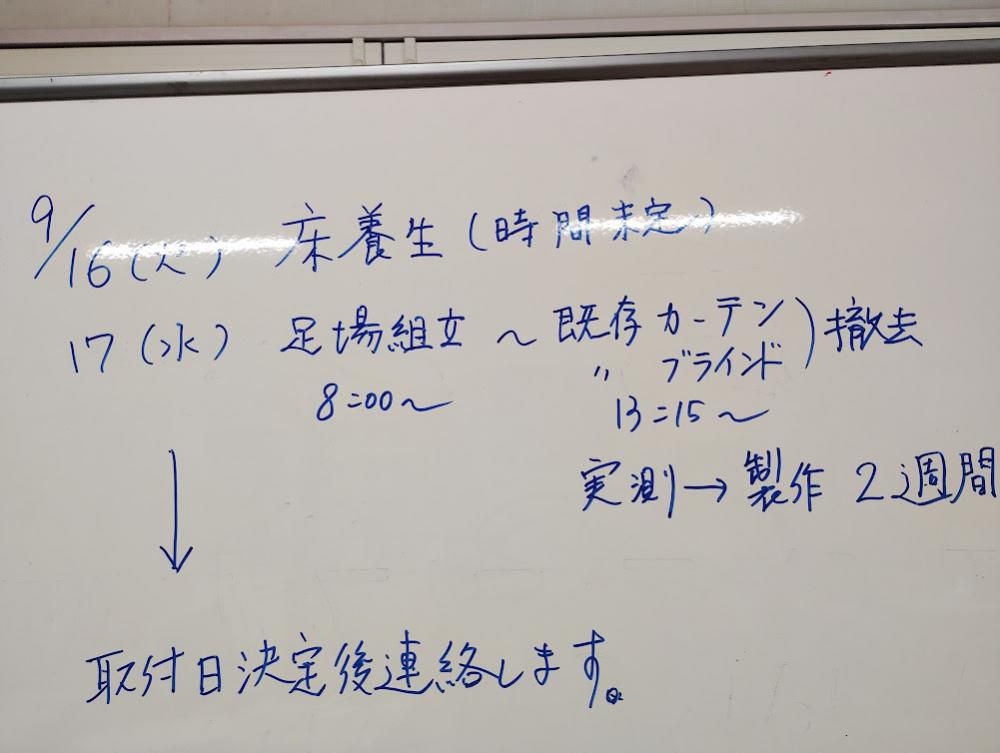 9/16(火) 床養生(時間未定)
17(水) 足場組立 〜 既存カーテン)撤去
〃 ブラインド
8:00〜 13:15〜
実測→製作 2週間
↓
取付日決定後連絡します。